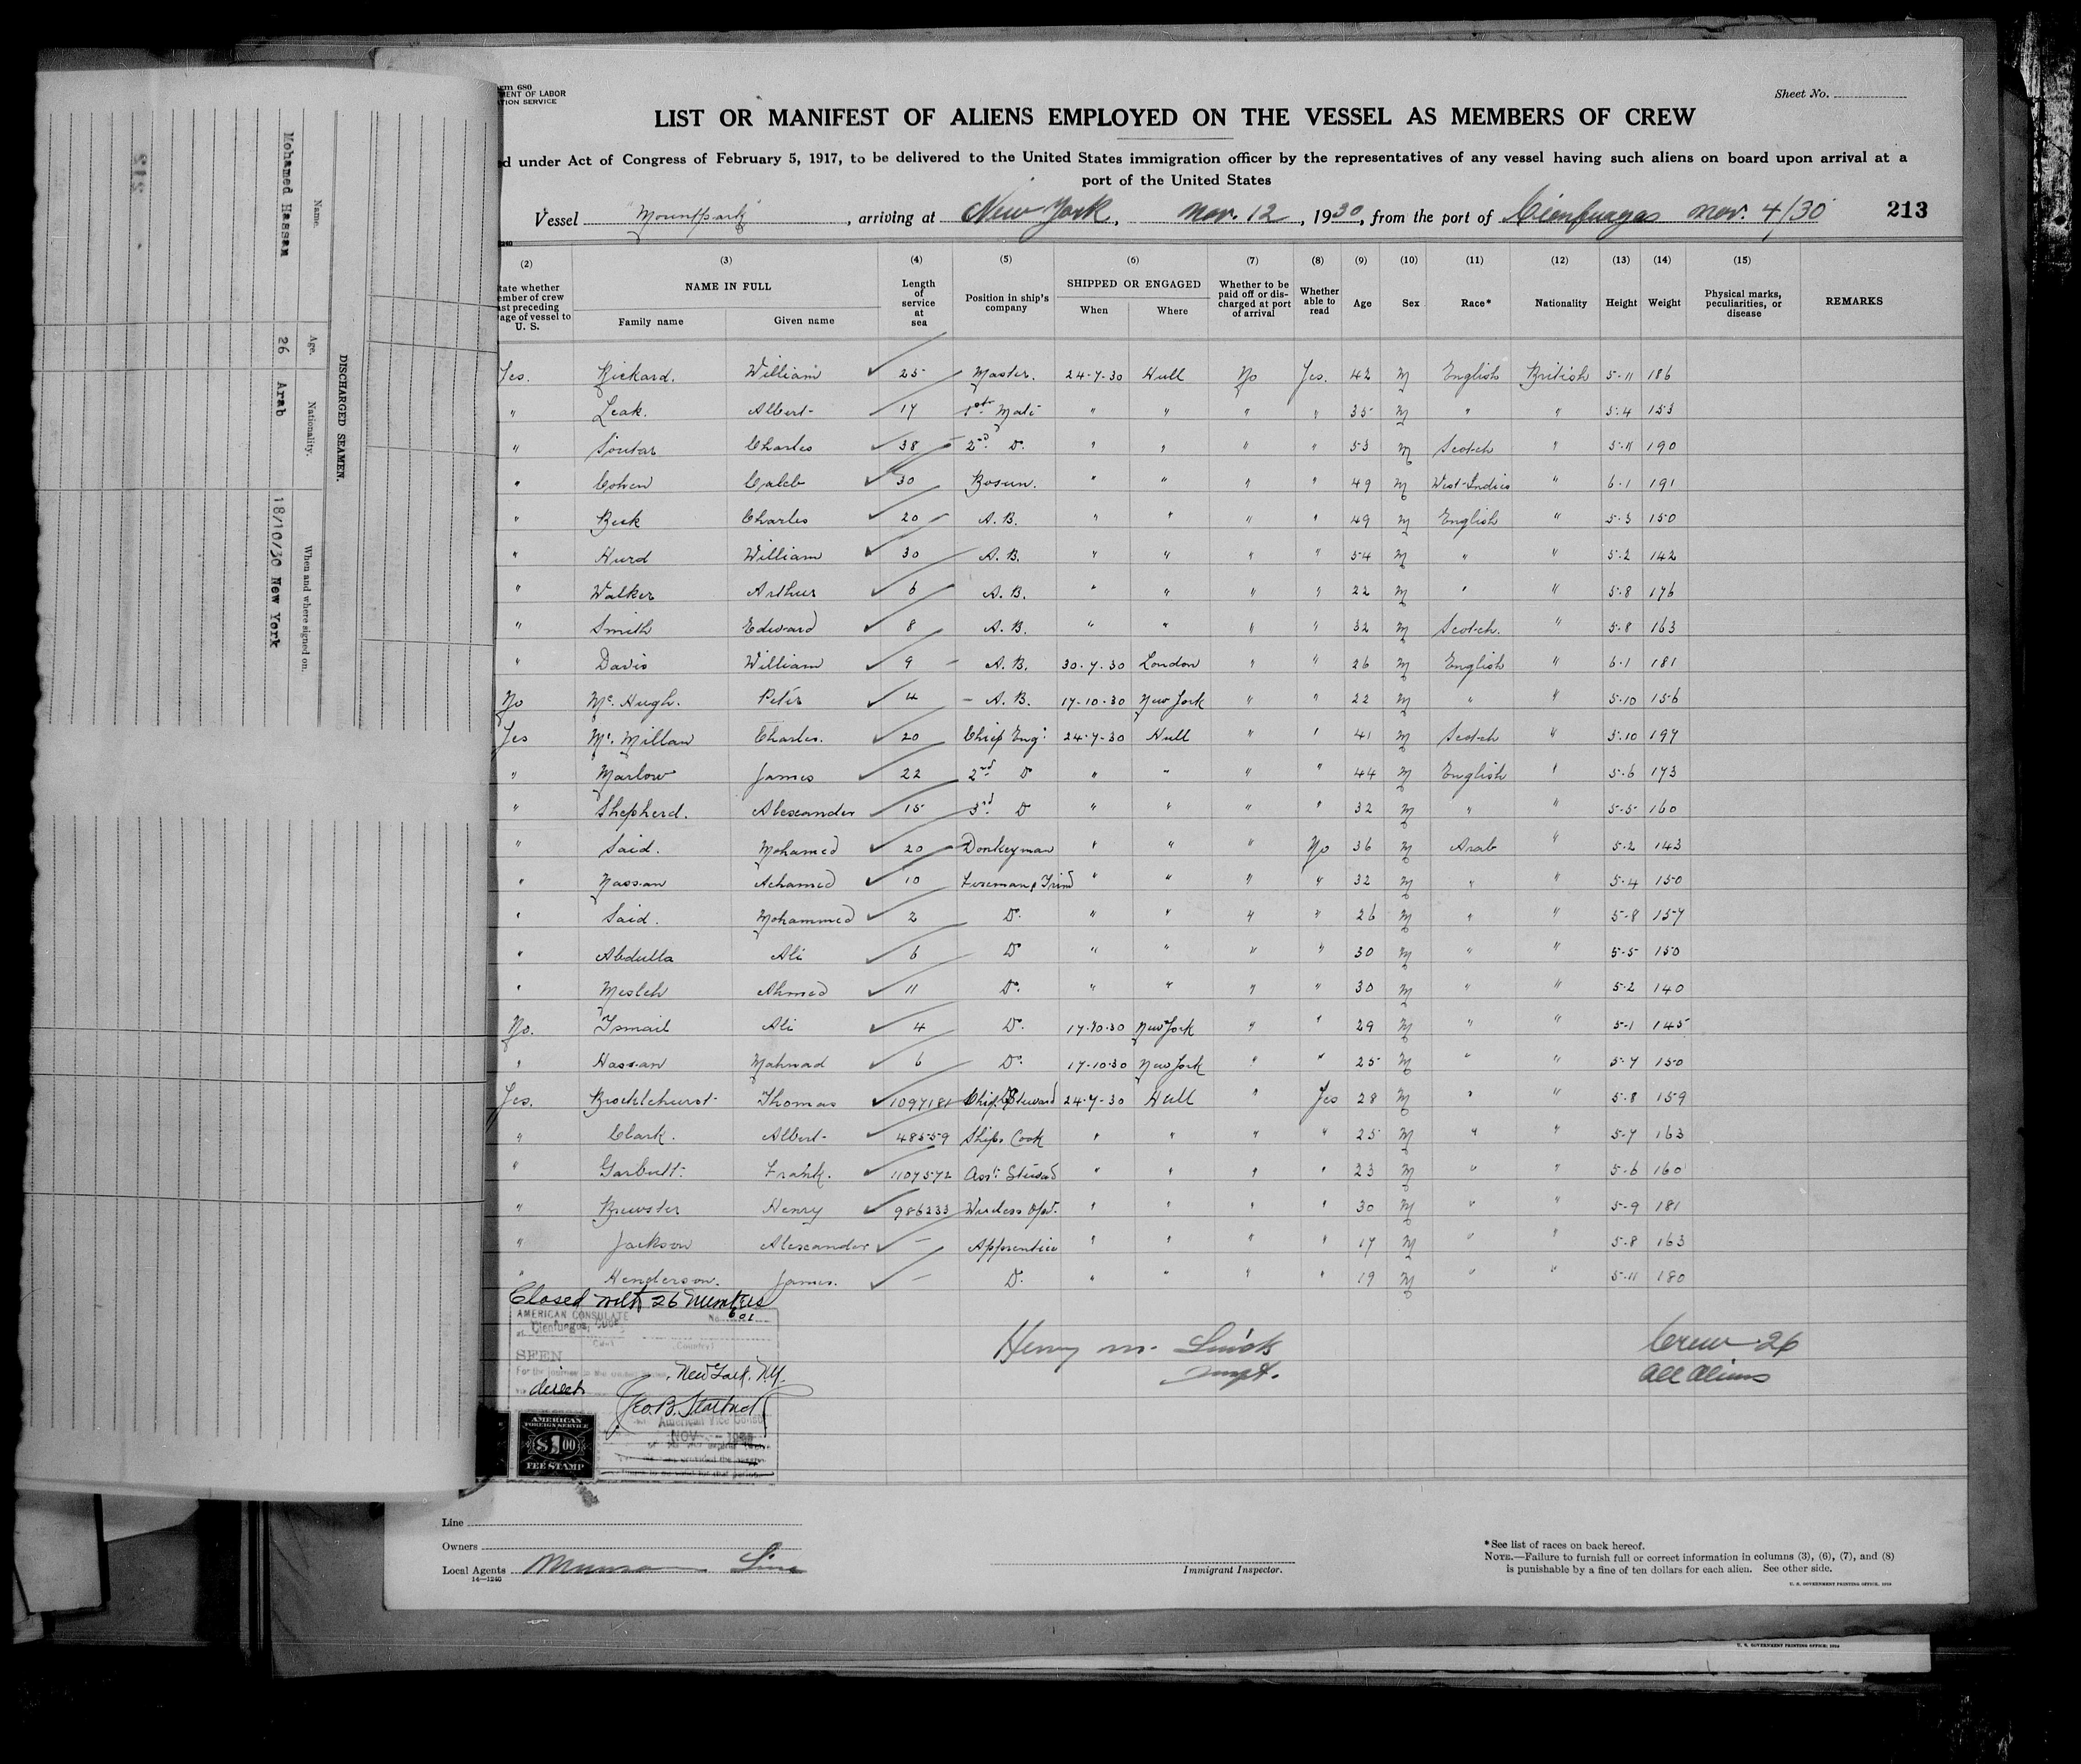 Form 680
MENT OF LABOR
TION SERVICE
Sheet No.
LIST OR MANIFEST OF ALIENS EMPLOYED ON THE VESSEL AS MEMBERS OF CREW
d under Act of Congress of February 5, 1917, to be delivered to the United States immigration officer by the representatives of any vessel having such aliens on board upon arrival at a
port of the United States
Vessel "Mountpark", arriving at New York, Nov. 12, 1930, from the port of Cienfuegos Nov. 4/30 213
(2) (3) (4) (5) (6) (7) (8) (9) (10) (11) (12) (13) (14) (15)
tate whether ember of crew ast preceding age of vessel to U. S. NAME IN FULL Family name Given name Length of service at sea Position in ship's company SHIPPED OR ENGAGED When Where Whether to be paid off or discharged at port of arrival Whether able to read Age Sex Race* Nationality Height Weight Physical marks, peculiarities, or disease REMARKS
Yes. Rickard. William 25 Master. 24-7-30 Hull No Yes. 42 M English British 5-11 186
" Leak. Albert 17 1st Mate " " " " 35 M " " 5.4 153
" Soutar Charles 38 2nd Do " " " " 53 M Scotch " 5.11 190
" Cohen Caleb 30 Bosun. " " " " 49 M West-Indies " 6.1 191
" Beck Charles 20 A.B. " " " " 49 M English " 5.3 150
" Hurd William 30 A.B. " " " " 54 M " " 5.2 142
" Walker Arthur 6 A.B. " " " " 22 M " " 5.8 176
" Smith Edward 8 A.B. " " " " 32 M Scotch. " 5.8 163
" Davis William 9 A.B. 30.7.30 London " " 26 M English " 6.1 181
No McHugh. Peter 4 A.B. 17-10-30 New York " " 22 M " " 5.10 156
Yes McMillan Charles. 20 Chief Engr 24-7-30 Hull " " 41 M Scotch " 5.10 197
" Marlow James 22 2nd Do " " " " 44 M English " 5.6 173
" Shepherd. Alexander 15 3rd Do " " " " 32 M " " 5-5 160
" Said. Mohamed 20 Donkeyman " " " No 36 M Arab " 5.2 143
" Nassan Achamed 10 Fireman & Trim " " " " 32 M " " 5.4 150
" Said. Mohammed 2 Do. " " " " 26 M " " 5-8 157
" Abdulla Ali 6 Do " " " " 30 M " " 5-5 150
" Mesleh Ahmed 11 Do. " " " " 30 M " " 5.2 140
No. Ismail Ali 4 Do. 17-10-30 New York " " 29 M " " 5-1 145
" Hassan Mahmad 6 Do. 17-10-30 New York " " 25 M " " 5.7 150
Yes. Brocklehurst Thomas 1097181 Chief Steward 24-7-30 Hull " Yes 28 M " " 5.8 159
" Clark. Albert 48559 Ships Cook " " " " 25 M " " 5-7 163
" Garbutt. Frank. 1107572 Asst. Steward " " " " 23 M " " 5.6 160
" Brewster Henry 986233 Wireless Opr. " " " " 30 M " " 5-9 181
" Jackson Alexander — Apprentice " " " " 17 M " " 5.8 163
" Henderson. James. — Do. " " " " 19 M " " 5-11 180
Closed with 26 members
AMERICAN CONSULATE
No. 601
at Cienfuegos, Cuba
SEEN
For the journey to the
New York, N.Y.
direct
American Vice Consul
NOV
AMERICAN
FOREIGN SERVICE
$1.00
FEE STAMP
Henry M.
Inspt.
Crew 26
All Aliens
Line
Owners
Local Agents Munson Line
14—1240
Immigrant Inspector.
*See list of races on back hereof.
NOTE.—Failure to furnish full or correct information in columns (3), (6), (7), and (8)
is punishable by a fine of ten dollars for each alien. See other side.
U. S. GOVERNMENT PRINTING OFFICE
U. S. GOVERNMENT PRINTING OFFICE
DISCHARGED SEAMEN.
Name. Age. Nationality. When and where signed on.
Mohamed Hassan 26 Arab 18/10/30 New York